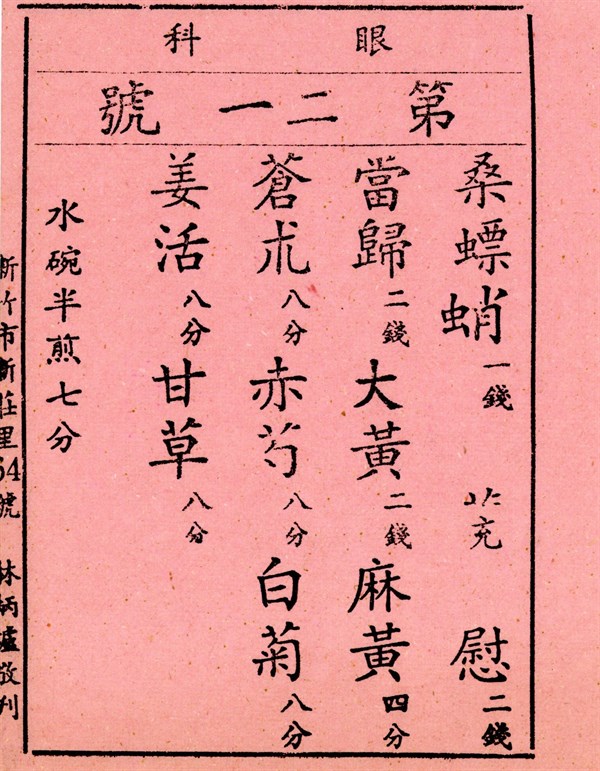 眼科
第二一號
桑螵蛸一錢 茺慰二錢
當歸二錢 大黃二錢 麻黃四分
蒼朮八分 赤芍八分 白菊八分
姜活八分 甘草八分
水碗半煎七分
新竹市新莊里號 林炳爐敬刊